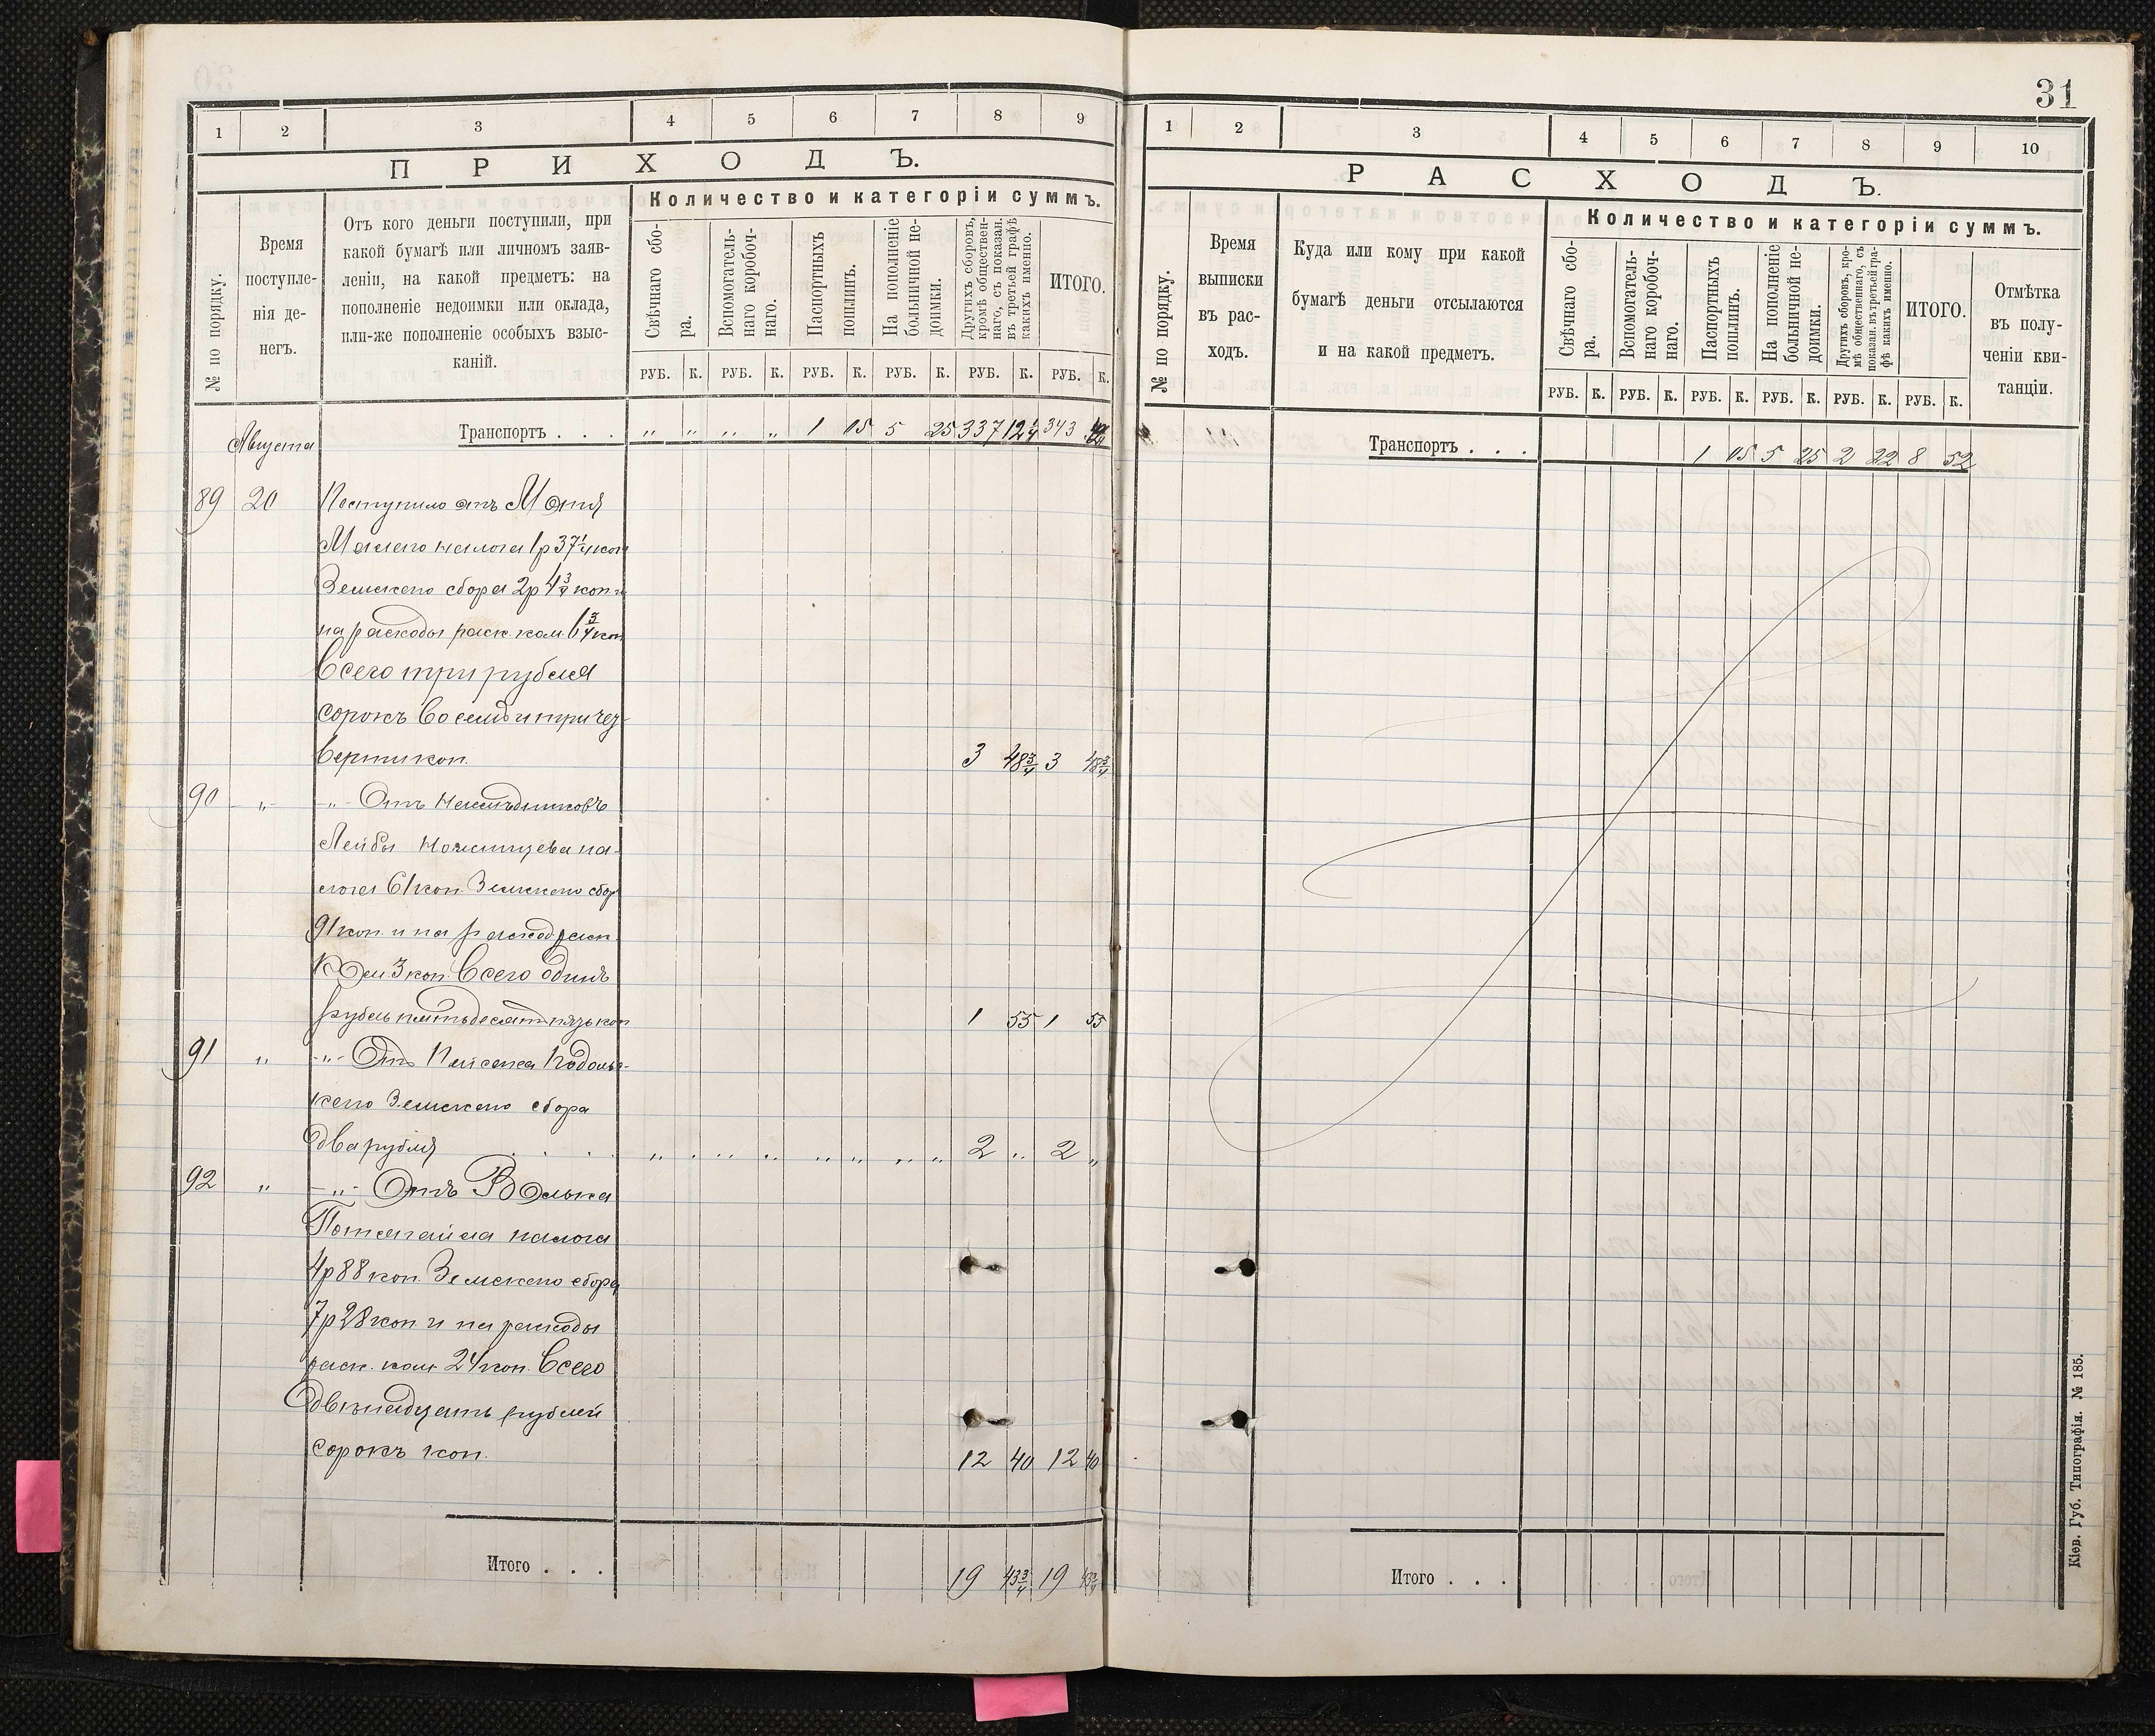 31
1 2 3 4 5 6 7 8 9
ПРИХОДЪ.
№ по порядку.
Время
поступле-
нія де-
негъ.
Отъ кого деньги поступили, при
какой бумагѣ или личномъ заяв-
леніи, на какой предметъ: на
пополненіе недоимки или оклада,
или-же пополненіе особыхъ взыс-
каній.
Количество и категоріи суммъ.
Свѣчнаго сбо-
ра.
Вспомогатель-
наго коробоч-
наго.
Паспортныхъ
пошлинъ.
На пополненіе
больничной не-
доимки.
Другихъ сборовъ,
кромѣ обществен-
наго, съ показан.
въ третьей графѣ
какихъ именно.
ИТОГО.
РУБ. К. РУБ. К. РУБ. К. РУБ. К. РУБ. К. РУБ. К.
Августа Транспортъ . . . „ „ „ „ 1 05 5 25 337 12¼ 343
89 20 Поступило отъ
налога 1р 37¼ коп
Земскаго сбора 2р 4¾ коп и
на расходы раск. ком. 6¾ коп
Всего три рубля
сорокъ восемь и три чет-
верти коп. 3 48¾ 3 48¾
90 „ -„- Отъ Наслѣдниковъ
Лейбы на-
лога 61 коп. Земскаго сбор
91 коп. и на расход. раск.
Ком. 3 коп. Всего одинъ
рубль пятьдесят пять коп 1 55 1 55
91 „ -„- Отъ Пейсаха Подоль-
скаго Земскаго сбора
два рубля . . . „ . „ „ „ „ „ „ 2 „ 2 „
92 „ -„- Отъ Волька
налога
4р 88 коп. Земскаго сбора
7р 28 коп и на расходы
раск. ком 24 коп. Всего
двѣнадцать рублей
сорокъ коп. 12 40 12 40
Итого . . . 19 43¾ 19 43¾
1 2 3 4 5 6 7 8 9 10
РАСХОДЪ.
№ по порядку.
Время
выписки
въ рас-
ходъ.
Куда или кому при какой
бумагѣ деньги отсылаются
и на какой предметъ.
Количество и категоріи суммъ.
Свѣчнаго сбо-
ра.
Вспомогатель-
наго коробоч-
наго.
Паспортныхъ
пошлинъ.
На пополненіе
больничной не-
доимки.
Другихъ сборовъ, кро-
мѣ общественнаго, съ
показан. въ третьей гра-
фѣ какихъ именно.
ИТОГО.
Отмѣтка
въ полу-
ченіи кви-
танціи.
РУБ. К. РУБ. К. РУБ. К. РУБ. К. РУБ. К. РУБ. К.
Транспортъ . . . 1 05 5 25 2 22 8 52
Итого . . .
Кіев. Губ. Типографія. № 185.